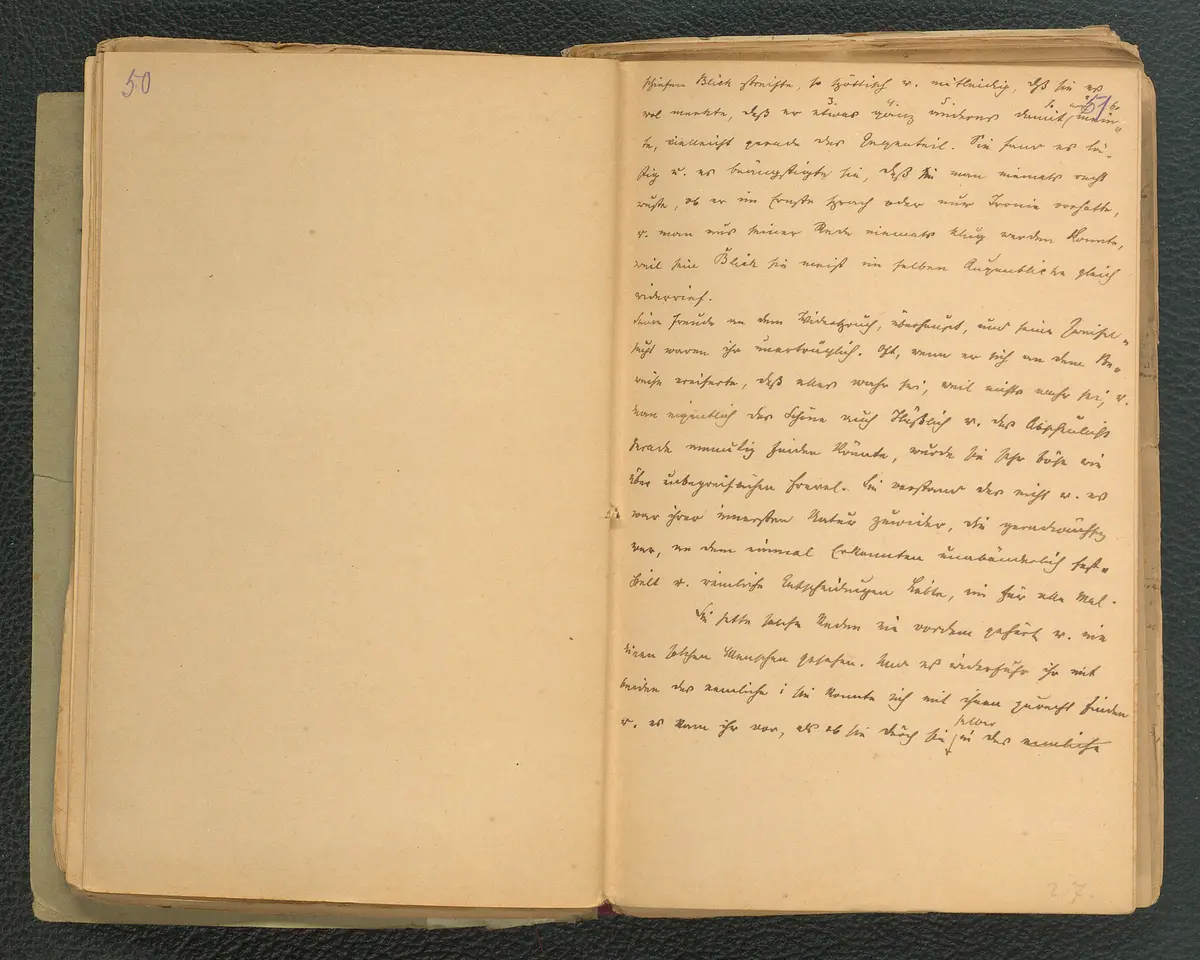 50
51
schiefen Blick streifte, so spöttisch u. mitleidig, daß sie es
wol merkte, daß er etwas ganz anderes damit mein-
te, vielleicht gerade das Gegenteil. Sie fand es lä-
stig u. es beängstigte sie, daß man niemals recht
wußte, ob er im Ernste sprach oder nur Ironie vorhatte,
u. man aus seiner Rede niemals klug werden konnte,
weil sein Blick sie meist im selben Augenblicke gleich
widerrief.
Seine Freude an dem Widerspruch, überhaupt, und seine Zweifel-
sucht waren ihr unerträglich. Oft, wenn er sich an dem Be-
weise ereiferte, daß alles wahr sei, weil nichts wahr sei, u.
man eigentlich das Schöne auch häßlich u. das Abscheuliche
gerade anmutig finden könnte, wurde sie sehr böse wie
über unbegreiflichen Frevel. Sie verstand das nicht u. es
war ihrer innersten Natur zuwider, die geradwüchsig
war, an dem einmal Erkannten unabänderlich fest-
hielt u. reinliche Entscheidungen liebte, ein für alle Mal.
Sie hatte solche Reden nie vordem gehört u. nie
einen solchen Menschen gesehen. Und es widerfuhr ihr mit
beiden das nemliche; sie konnte sich mit ihnen zurecht finden
u. es kam ihr vor, als ob sie durch sie
selber
in das nemliche
27.